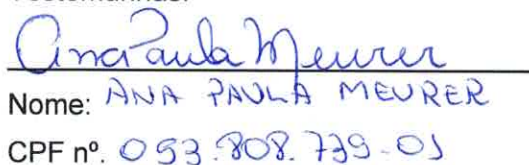 Ana Paula Meurer
Nome: ANA PAULA MEURER
CPF nº. 053.808.739-01